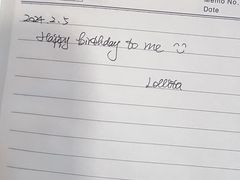 Memo No.
Date
2024.2.5
Happy birthday to me